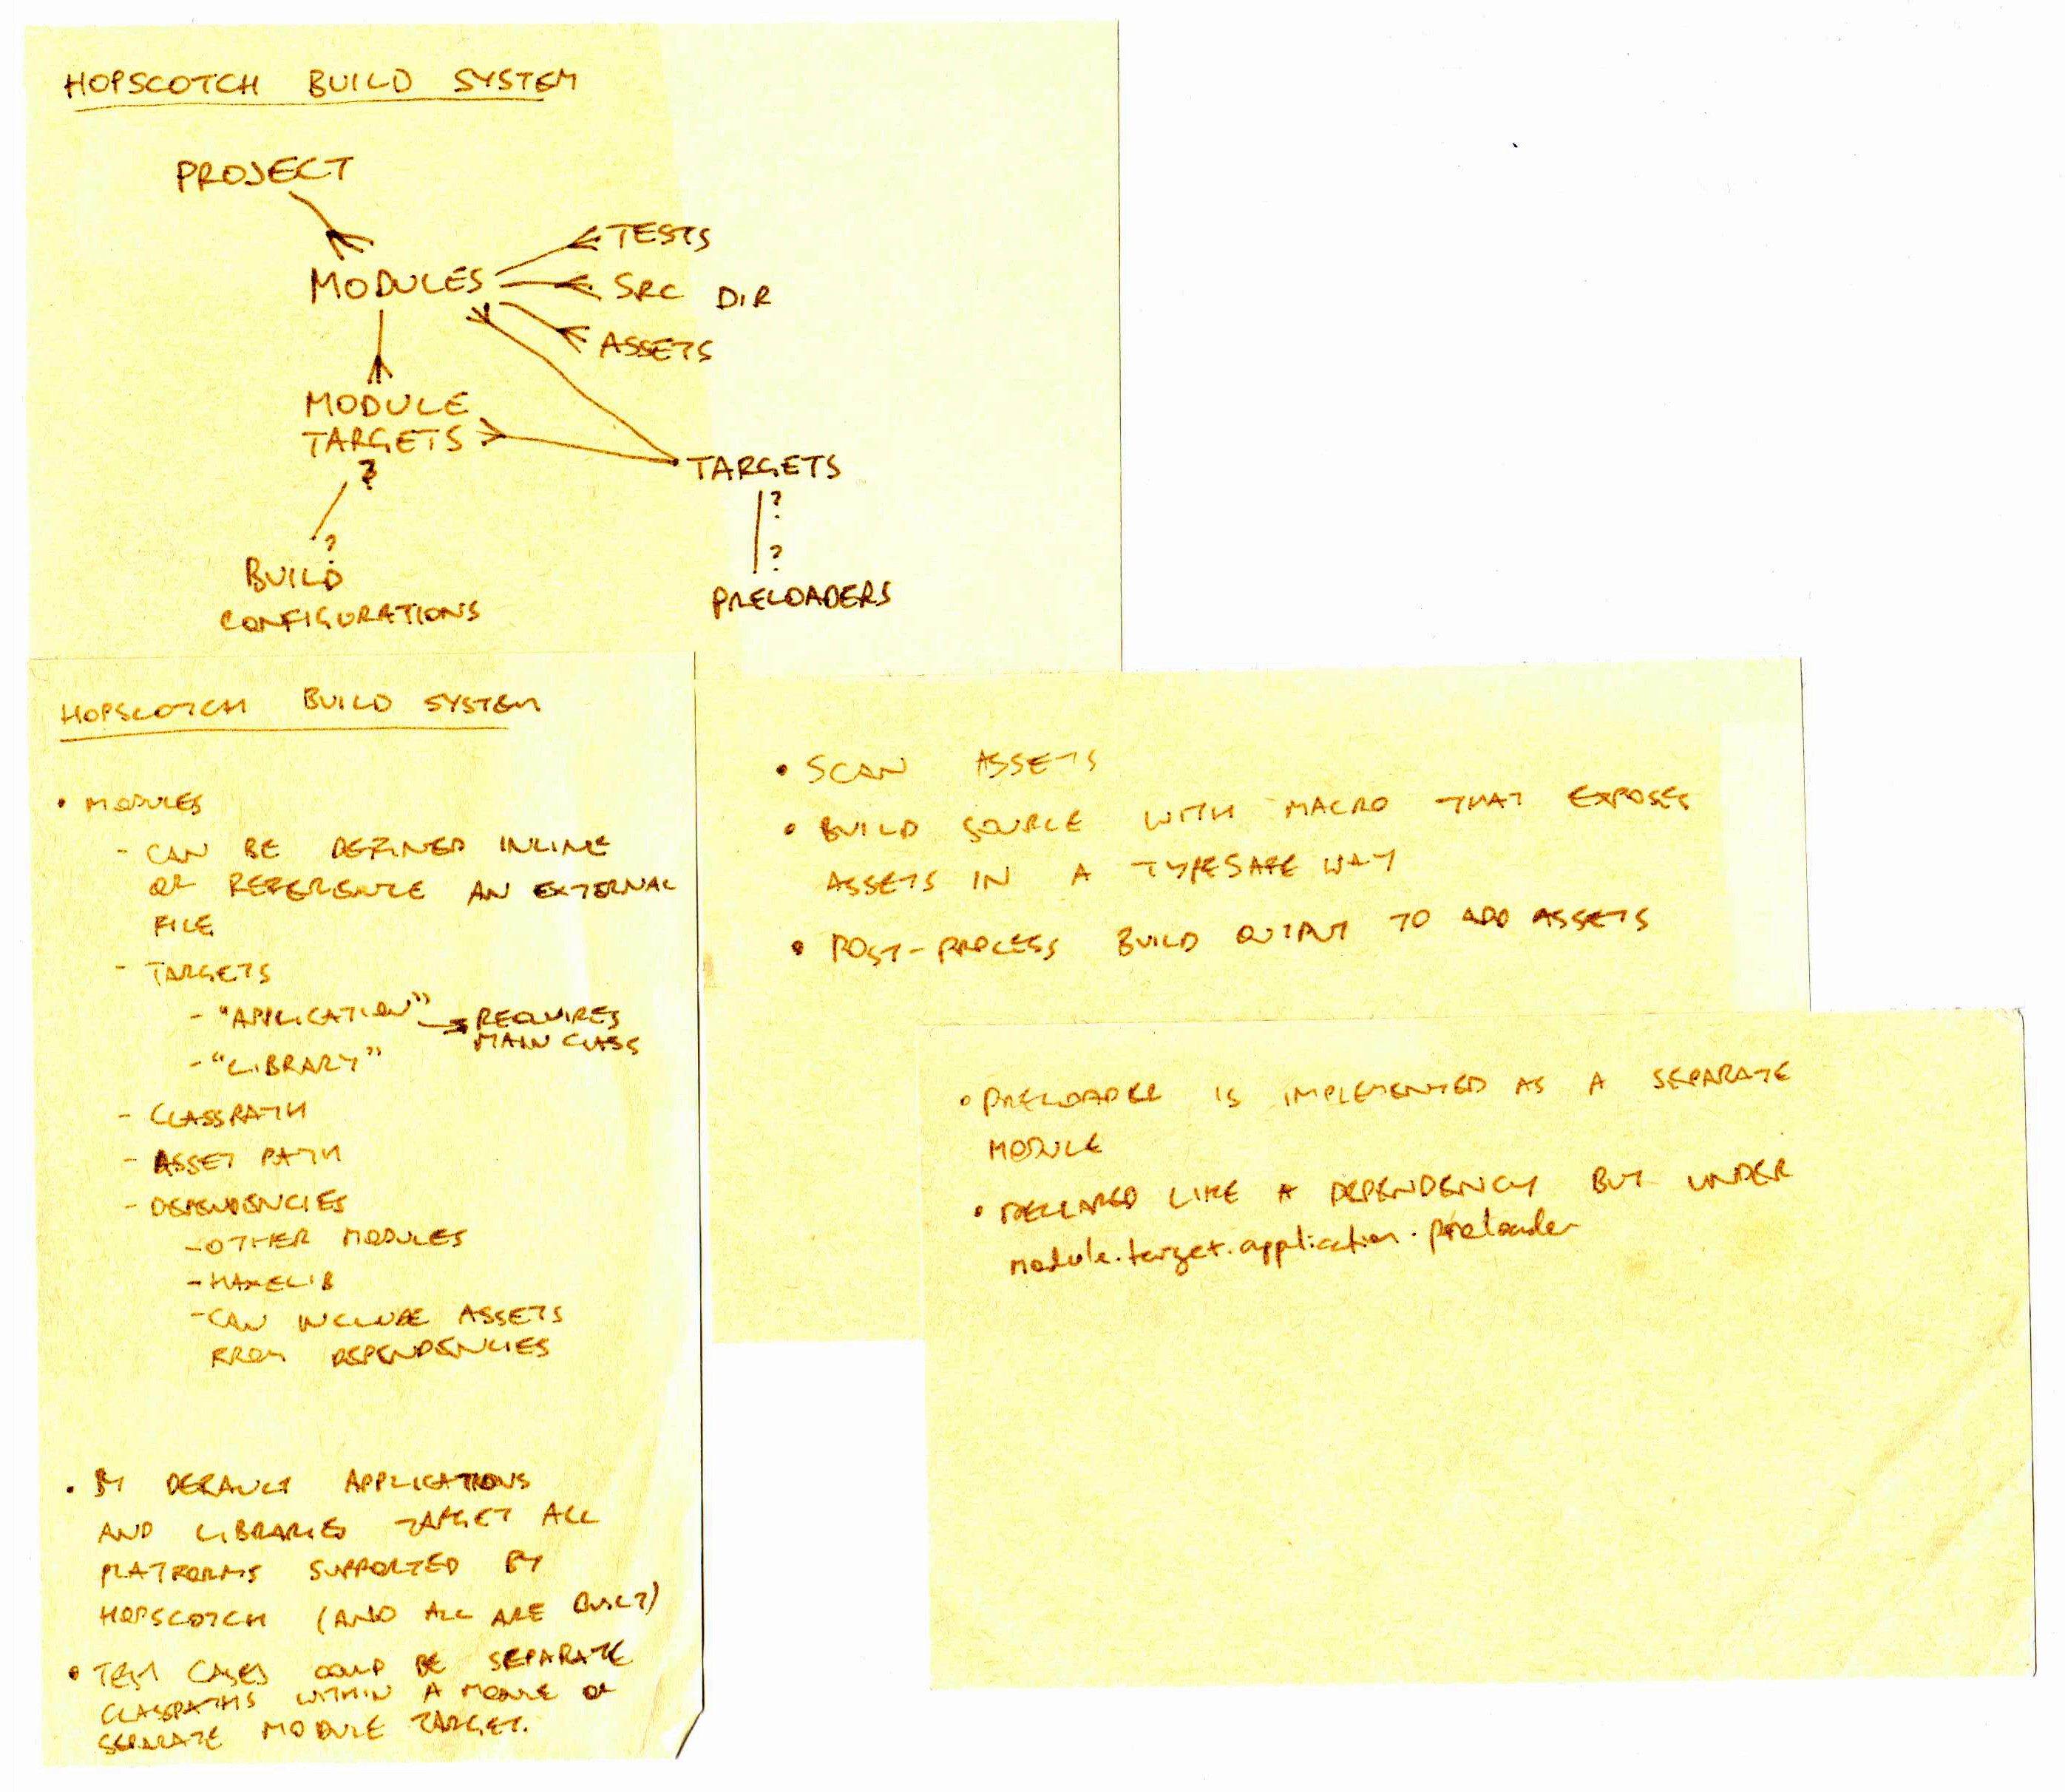 HOPSCOTCH BUILD SYSTEM
PROJECT
TESTS
MODULES
SRC DIR
ASSETS
MODULE
TARGETS
?
TARGETS
?
?
?
BUILD
CONFIGURATIONS
PRELOADERS
HOPSCOTCH BUILD SYSTEM
• MODULES
- CAN BE DEFINED INLINE
OR REFERENCE AN EXTERNAL
FILE
- TARGETS
- "APPLICATION" → REQUIRES
MAIN CLASS
- "LIBRARY"
- CLASSPATH
- ASSET PATH
- DEPENDENCIES
- OTHER MODULES
- HAXELIB
- CAN INCLUDE ASSETS
FROM DEPENDENCIES
• BY DEFAULT APPLICATIONS
AND LIBRARIES TARGET ALL
PLATFORMS SUPPORTED BY
HOPSCOTCH (AND ALL ARE BUILT)
• TEST CASES COULD BE SEPARATE
CLASSPATHS WITHIN A MODULE OR
SEPARATE MODULE TARGET.
• SCAN ASSETS
• BUILD SOURCE WITH MACRO THAT EXPOSES
ASSETS IN A TYPESAFE WAY
• POST-PROCESS BUILD OUTPUT TO ADD ASSETS
• PRELOADER IS IMPLEMENTED AS A SEPARATE
MODULE
• DECLARED LIKE A DEPENDENCY BUT UNDER
module.target.application.preloader